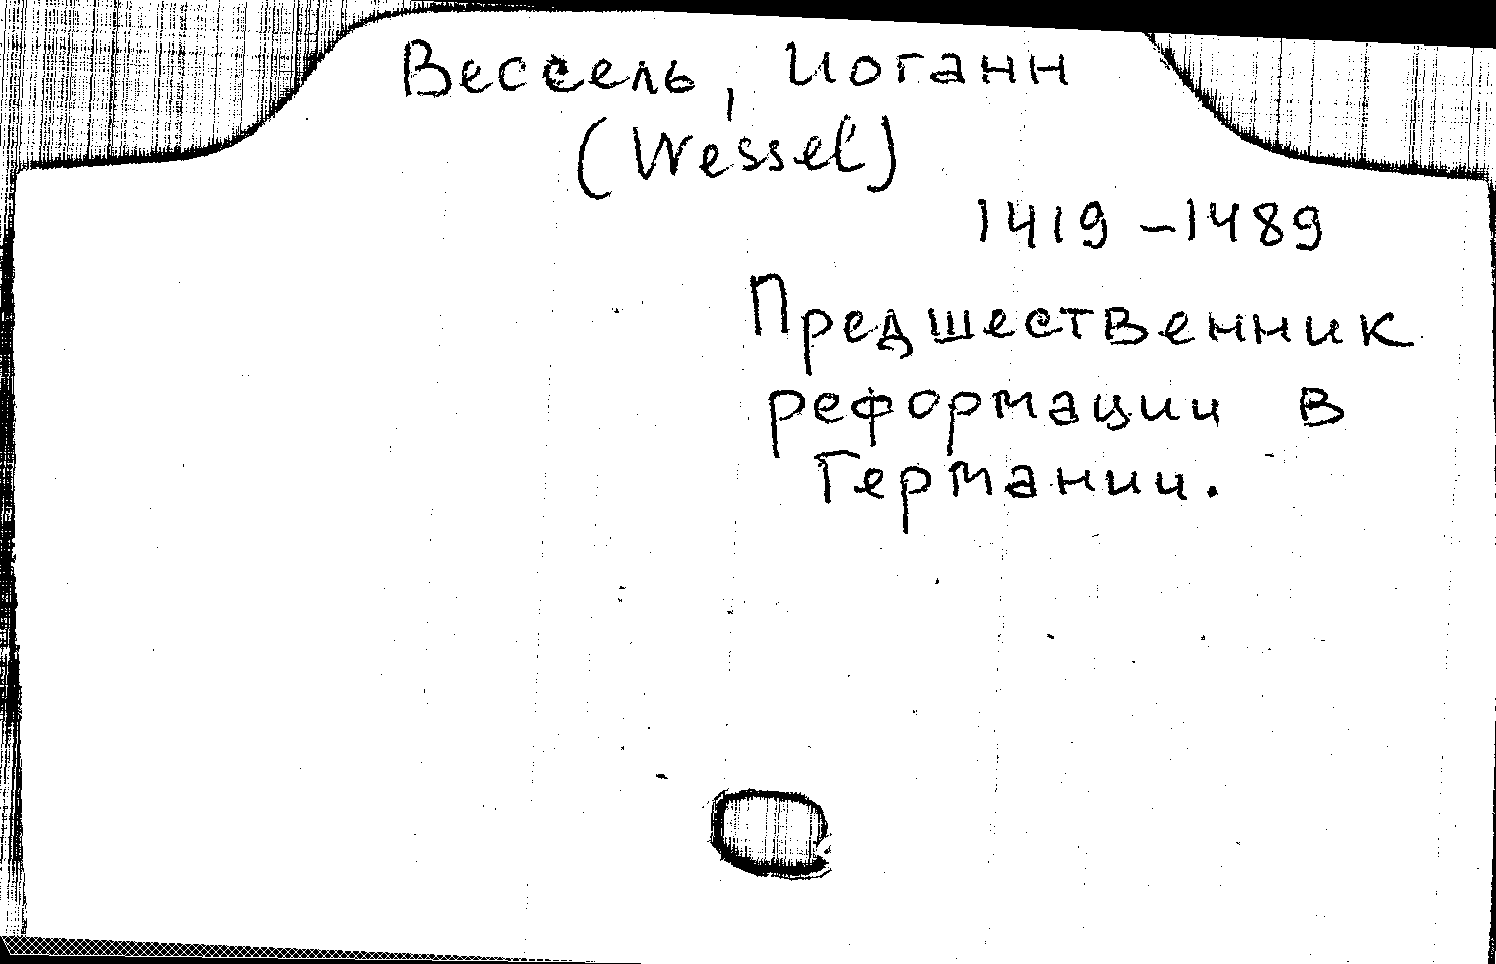 Вессель, Иоганн
(Wessel)
1419 - 1489
Предшественник
реформации в
Германии.